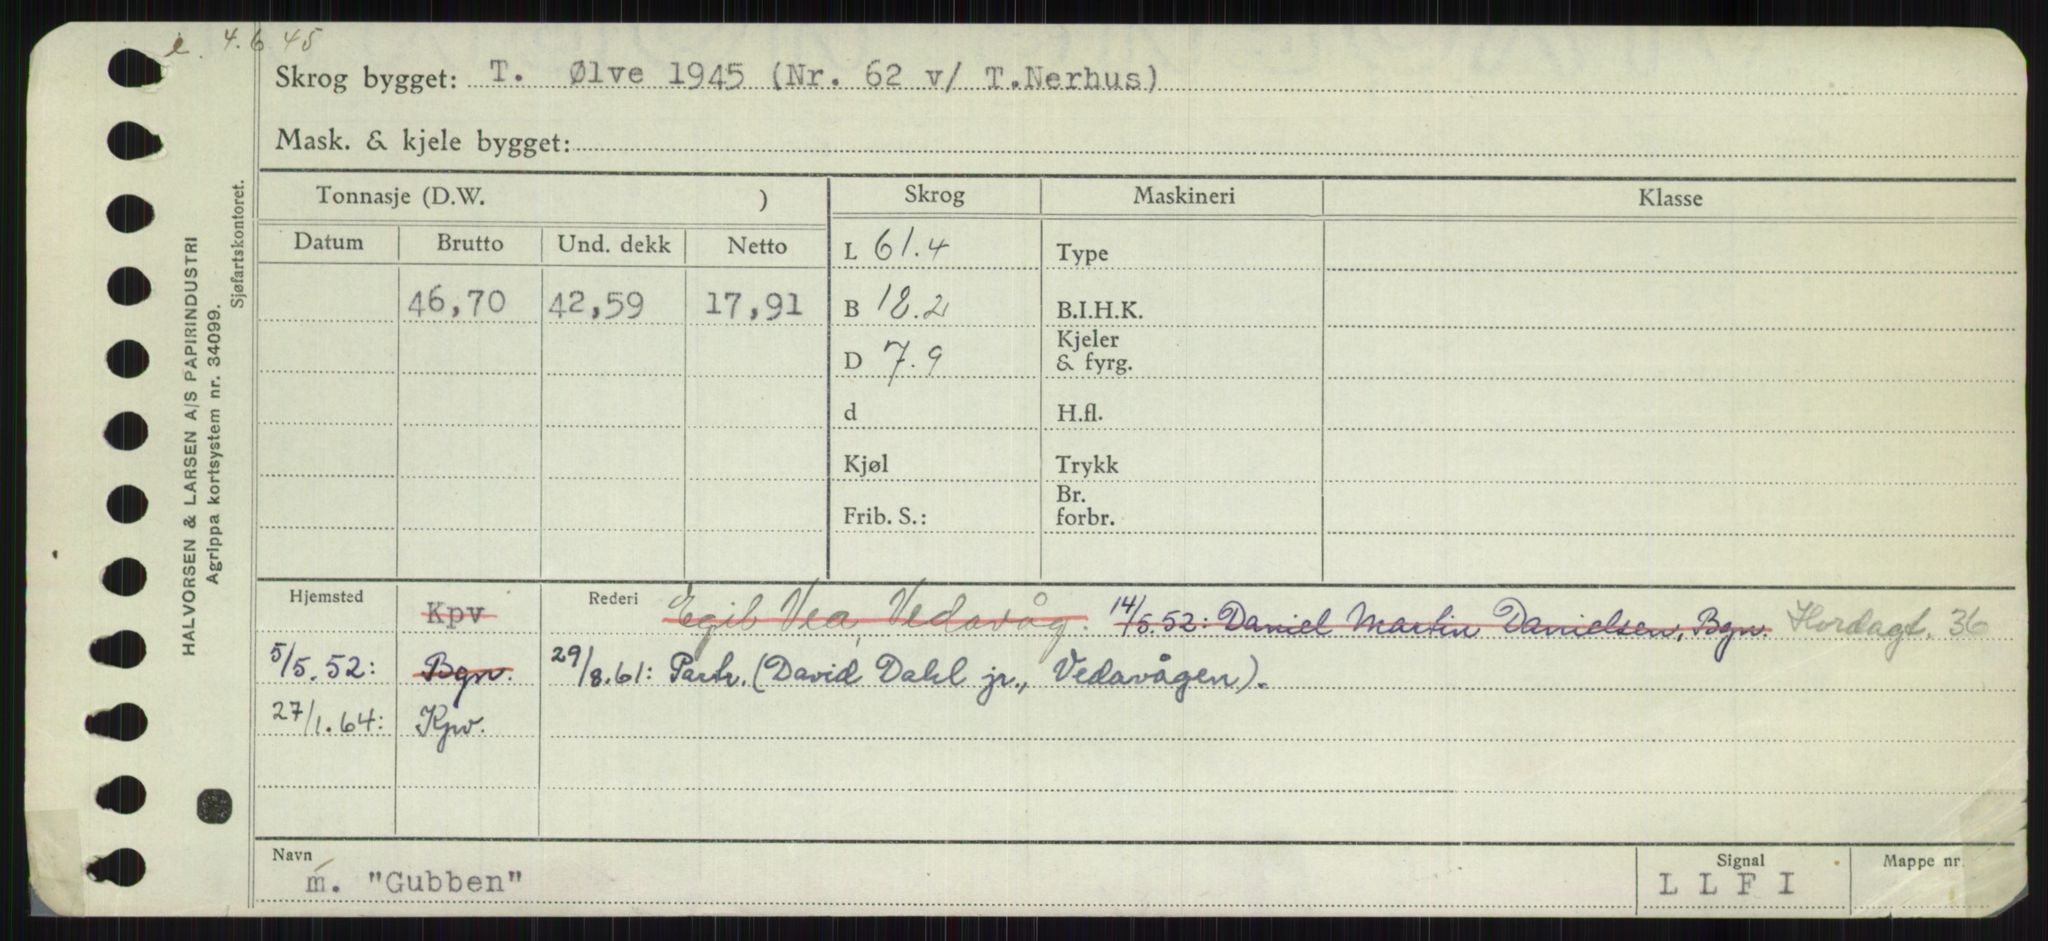 e 4.6 45
Skrog bygget: T. Ølve 1945 (Nr. 62 v/ T.Nerhus)
Mask. & kjele bygget:
HALVORSEN & LARSEN A/S PAPIRINDUSTRI
Agrippa kortsystem nr. 34099.
Sjøfartskontoret.
Tonnasje (D.W. ) Skrog Maskineri Klasse
Datum Brutto Und. dekk Netto L 61.4 Type
46,70 42,59 17,91 B 18.2 B.I.H.K.
D 7.9 Kjeler & fyrg.
d H.fl.
Kjøl Trykk
Frib. S.: Br. forbr.
Hjemsted Kpv Rederi Egil Vea, Vedavåg. 14/5.52: Daniel Martin Danielsen, Bgn. Hordagt. 36
5/5.52: Bgn. 29/8.61: Partr. (David Dahl jr., Vedavågen).
27/1.64: Kpv.
Navn Signal Mappe nr.
m. "Gubben" L L F I